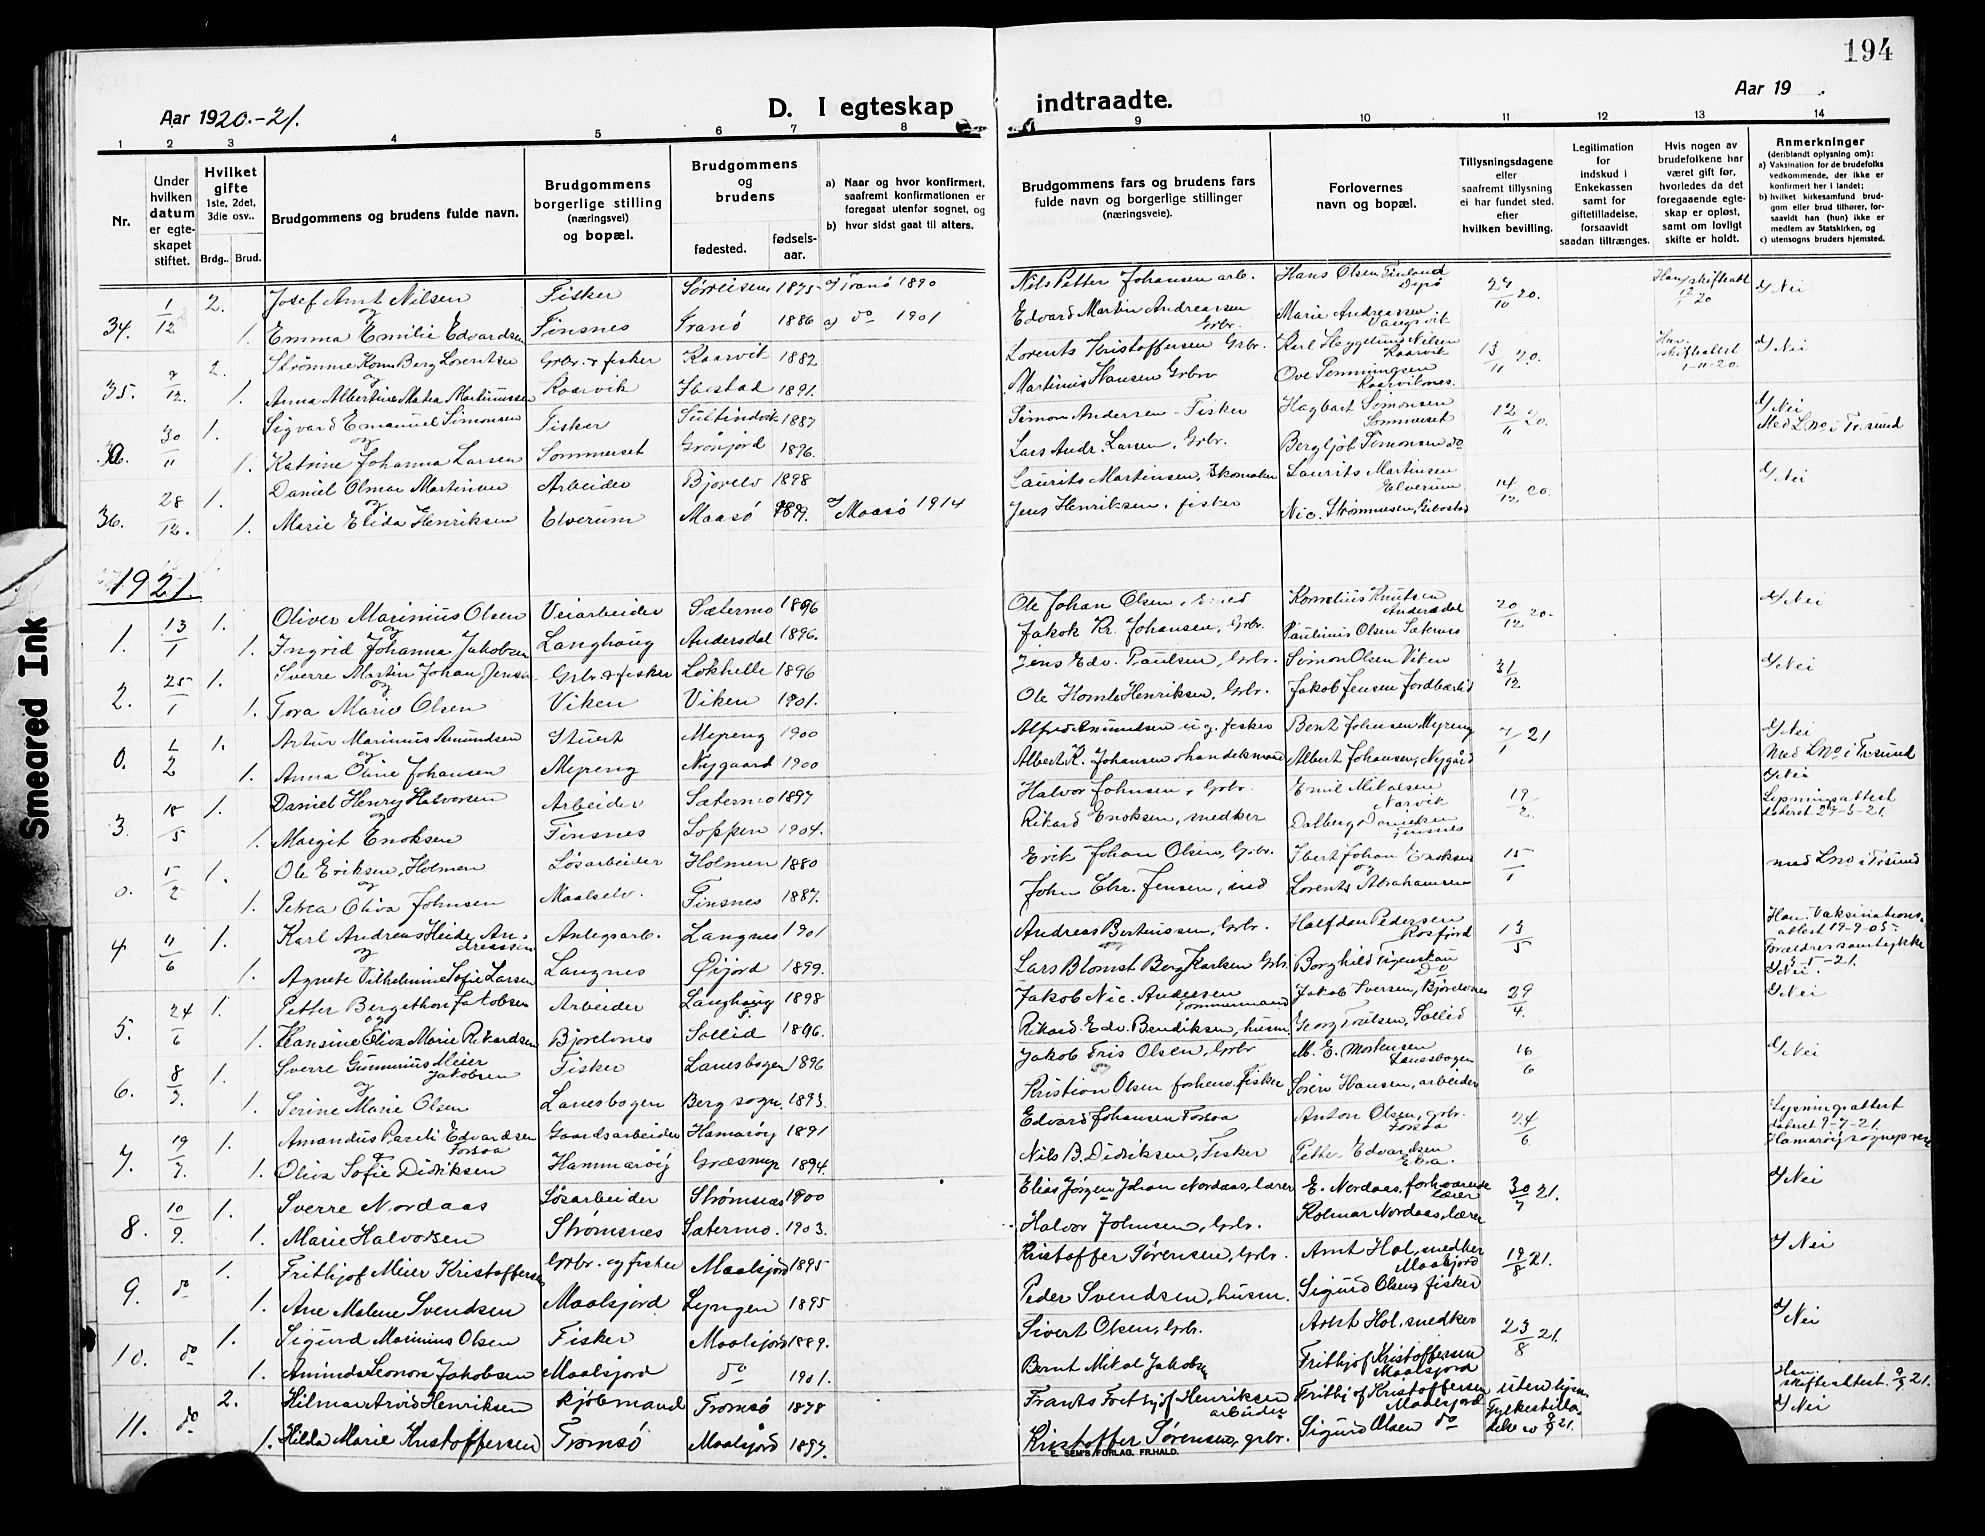 194
Aar 1920.-21.
D. I egteskap indtraadte.
Aar 19
1 2 3 4 5 6 7 8 9 10 11 12 13 14
Nr.
Under hvilken datum er egteskapet stiftet.
Hvilket gifte 1ste, 2det, 3die osv..
Brdg.. Brud.
Brudgommens og brudens fulde navn.
Brudgommens borgerlige stilling (næringsvei) og bopæl.
Brudgommens og brudens
fødested. fødsels-aar.
a) Naar og hvor konfirmert, saafremt konfirmationen er foregaat utenfor sognet, og
b) hvor sidst gaat til alters.
Brudgommens fars og brudens fars fulde navn og borgerlige stillinger (næringsveie).
Forlovernes navn og bopæl.
Tillysningsdagene eller saafremt tillysning ei har fundet sted. efter hvilken bevilling.
Legitimation for indskud i Enkekassen samt for giftetilladelse, forsaavidt saadan tiltrænges.
Hvis nogen av brudefolkene har været gift før, hvorledes da det foregaaende egteskap er opløst, samt om lovligt skifte er holdt.
Anmerkninger (deriblandt oplysning om):
a) Vaksination for de brudefolks vedkommende, der ikke er konfirmert her i landet;
b) hvilket kirkesamfund brudgom eller brud tilhører, forsaavidt han (hun) ikke er medlem av Statskirken, og
c) utensogns bruders hjemsted.
34. 1/12 2. Josef Arnt Nilsen Fisker Sørreisen 1875 a) Tranø 1890 Nils Petter Johansen arb. Hans Olsen Finland 24/10 20. Nei
og
1. Emma Emilie Edvardsen Finsnes Tranø 1886 a) do 1901 Edvard Martin Andreassen Grbr. Marie Andreassen Vangsvik
35. 2. Strømme Berg Lorentsen Grbr. & fisker Kaarvik 1882 Lorents Kristoffersen Grbr. Karl Nilsen Kaarvik 13/11 20. Han skifteattest 1-11-20. Nei
og
1. Anna Albertine Martinussen Kaarvik Ibestad 1891. Martinus Hansen Grbr Ove Kaarviknes.
30/11 1. Sigvard Emanuel Simonsen Fisker 1887 Simon Andersen - Fisker Hagbart Simonsen Sommerset 12/11 20. Nei
og
1. Katrine Johanna Larsen Sommerset Grønjord 1896. Lars Andr. Larsen, Grbr. Bergljot Simonsen do Med L no i Tr.sund
36. 28/12. 1. Daniel Olmar Martinsen Arbeider Bjorelv 1898 Laurits Martinsen, Skomaker Laurits Martinsen Elverum 14/12 20. Nei
og
1. Marie Elida Henriksen Elverum Maasø 1899. a/ Maasø 1914 Jens Henriksen, fisker Nic. Strømmesen, Gibostad
1921.
1. 13/1 1. Oliver Marinius Olsen Veiarbeider Sætermo 1896 Ole Johan Olsen, Kornelius Knutsen Andersdal 20/12 20. Nei
og
1. Ingrid Johanna Jakobsen Langhaug Andersdal 1896. Jakob Kr. Johansen, Grbr. Paulinus Olsen
2. 25/1 1. Sverre Martin Johan Jensen Grbr & fisker Lökhelle 1896 Jens Edv. Paulsen, Grbr. Simon Olsen Viken 31/12 Nei
og
1. Tora Marie Olsen Viken Viken 1901. Ole Henriksen, Grbr. Jakob Jensen
0. 1. Artur Marinius Amundsen Stuert Myreng 1900 Alfred Amundsen fisker Bent Johansen Myreng 21 Nei
og
1. Anna Oline Johansen Myreng Nygaard 1900 Albert K. Johansen handelsmand Albert Johansen, Nygård Med L no i Tr.sund
3. 1. Daniel Henry Halvorsen Arbeider Sætermo 1897 Halvor Johnsen, Grbr. Emil Mikalsen Narvik 19/2. Nei Lysningsattest
og
1. Margit Enoksen Finsnes Loppen 1904. Rikard Enoksen, snedker Finsnes
0. 5/2 1. Ole Eriksen, Holmen Løsarbeider Holmen 1880 Erik Johan Olsen, Grbr. Johan Enoksen 15/1 med L no i Tr.sund
og
1. Petrea Oliva Johnsen Maalselv. Finsnes 1887. John Chr. Jensen, ind Lorents Abrahamsen
4 11/6 1. Karl Andreas Heide Andreassen Anlegsarb. Langnes 1901 Andreas Berteussen, Grbr. Halfdan Pedersen Rosfjord 13/5 Han. Vaksinationsattest 19-9-05.
og
1. Agnete Vilhelmine Sofie Larsen Langnes Øijord 1899. Lars Blomst Berg Karlsen Grbr. Borghild Do Forældres samtykke Nei.
5. 24/6 1. Petter Bergethon Jakobsen Arbeider Langhaug 1898 Jakob Nic. Andersen Tommermand Jakob Iversen, Bjorelvnes 29/4. Nei
og
1. Hansine Oliva Marie Rikardsen Bjorelvnes Sollid 1896. Rikard Edv. Bendiksen, husm. Georg Poulsen, Sollid
6. 8/7 1. Sverre Gunnerius Meier Jakobsen Fisker Lanesbogen 1896 Jakob Fris Olsen, Grbr M. E. Mortensen Lanesbogen 16/6 Nei
og
1. Serine Marie Olsen Lanesbogen Berg sogn. 1893. Kristian Olsen forhenv. Fisker Søren Hansen, arbeider
7. 19/7 1. Amandus Pareli Edvardsen Forsaa Gaardsarbeider Hamarøy 1891 Edvard Johansen Forsaa Anton Olsen, grbr. Forsaa 24/6 Lysningsattest dateret 9-7-21. Hamarøy sogneprest
og
1. Oliva Sofie Didriksen Hammarøy 1894. Nils B. Didriksen, Fisker Petter Edvardsen
8. 10/9. 1. Sverre Nordaas Løsarbeider Strømsnes 1900 Elias Jørgen Johan Nordaas, lærer E. Nordaas, forhværende lærer 30/7 21. Nei
1. Marie Halvorsen Strømsnes Sætermo. 1903. Halvor Johnsen, Grbr. Kolmar Nordaas, lærer
9. do 1. Frithjof Meier Kristoffersen Grbr. og fisker Maalsjord 1895 Kristoffer Sørensen, Grbr. Arnt Hol, snedker Maalsjord 19/8 21. Nei
1. Ane Malene Svendsen Maalsjord Lyngen 1895 Peder Svendsen, husm. Sigurd Olsen, fisker
10. do 1. Sigurd Marinius Olsen Fisker Maalsjord 1889. Sivert Olsen, Grbr. Arnt Hol, snedker 23/8 21. Nei
1. Aminda Leonora Jakobsen Maalsjord do 1901. Bernt Mikal Jakobs Frithjof Kristoffersen Maalsjord
11. do 2. Hilmar Arvid Henriksen kjøbmand Tromsø 1878 Frants Henriksen arbeider Frithjof Kristoffersen Maalsjord uten lysn. fylkestilladelse Han skifteattest. 9/9 21. Nei
1. Hilda Marie Kristoffersen Tromsø Maalsjord 1897. Kristoffer Sørensen, grbr. Sigurd Olsen do
E. SEM'S FORLAG, FR.HALD.
Smeared Ink